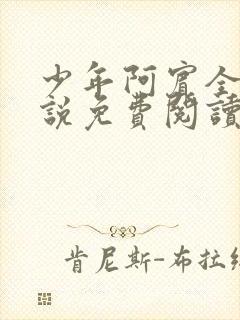 少年阿賓全
説免費閱讀
肯尼斯-布拉